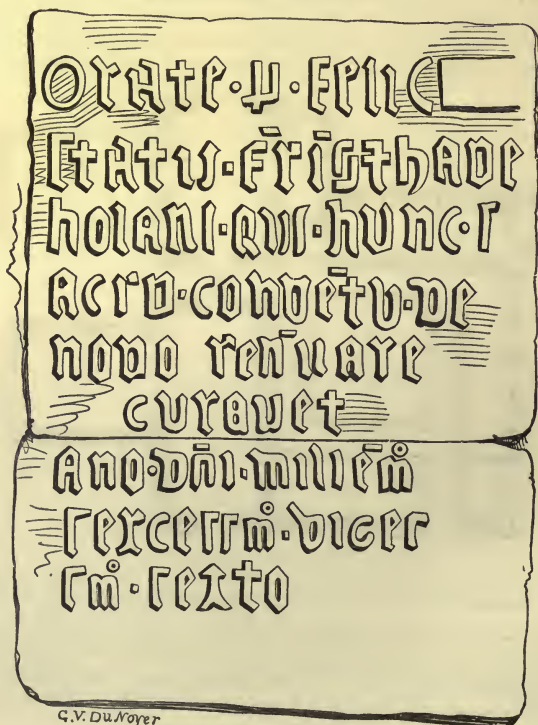 Orate · p · Felic
statu · Fr̄is̄ thade
holani · qui · hunc · s
acru · convēt̄u · de
novo ren̄uare
curauet
Ano · Dn̄i · millēm̊
sexcessm̊ · viges
sm̊ · sexto
G.V. Du Noyer